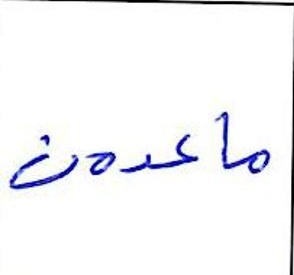 ماعدمن